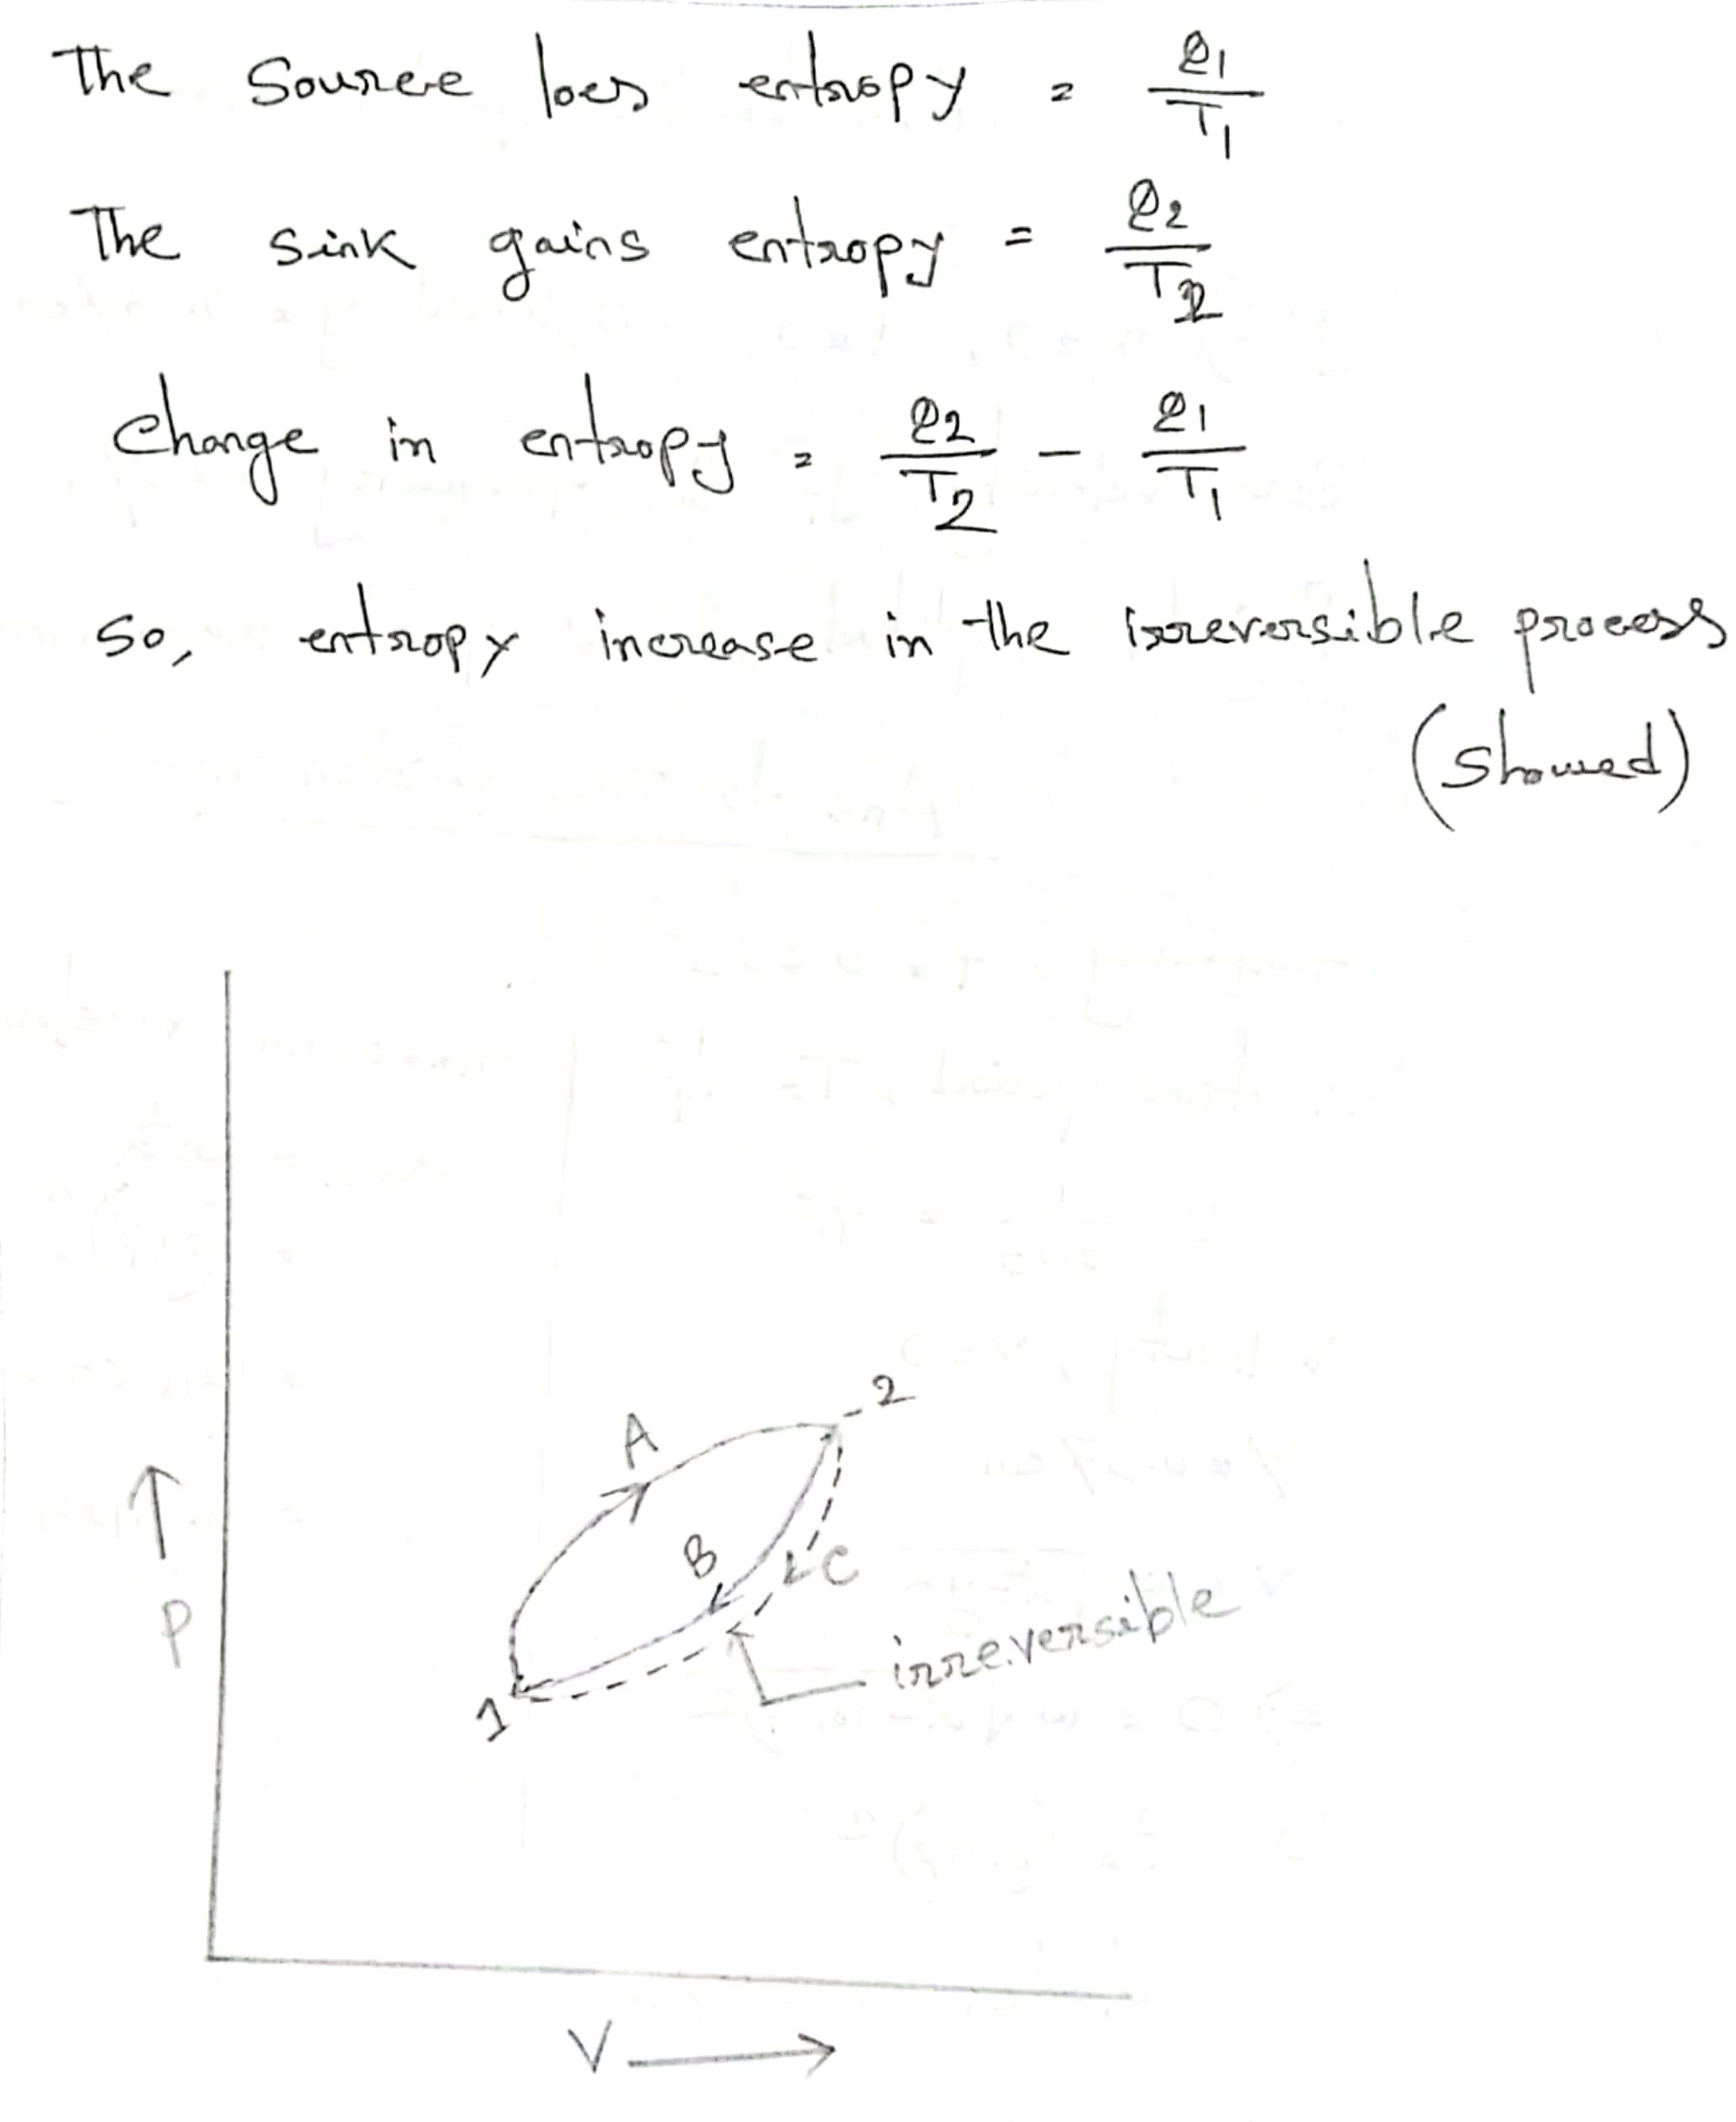 The Source loes entropy = Q1/T1
The sink gains entropy = Q2/T2
Change in entropy = Q2/T2 - Q1/T1
So, entropy increase in the irreversible process
(Showed)
2
A
B
C
irreversible
P
1
V